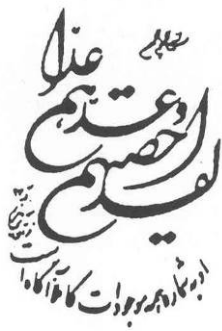 لقد احصیهم
و عدهم
عدا
او به شماره همه موجودات کاملا آگاه است